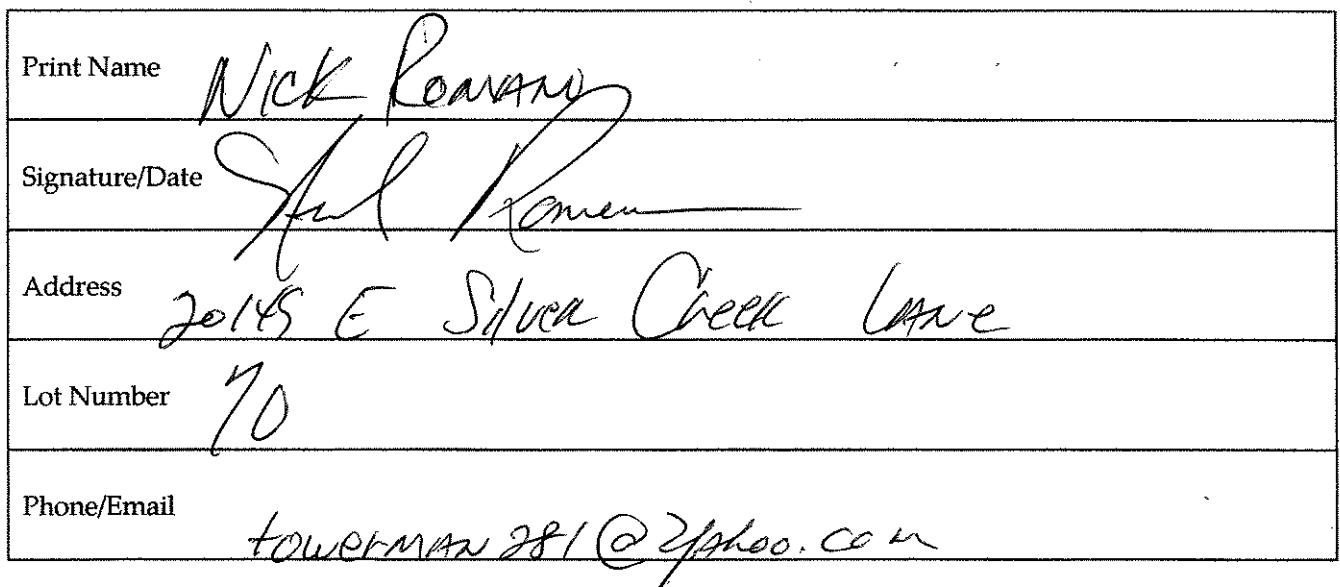 Print Name Nick Romano
Signature/Date
Address 20145 E Silver Creek Lane
Lot Number 70
Phone/Email towerman281@yahoo.com